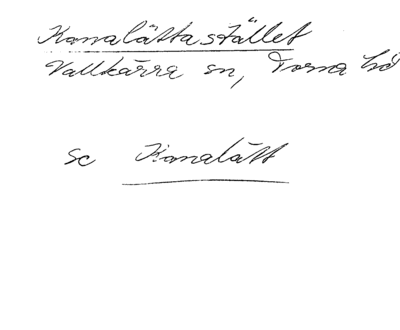 Kanalättastället
Vallkärra sn, Torna hd
se Kanalätt